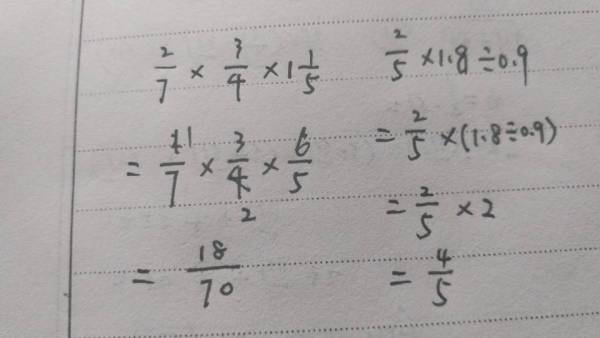 2/7 × 3/4 × 1 1/5
= 1/7 × 3/4 × 6/5
2
= 18/70
2/5 × 1.8 ÷ 0.9
= 2/5 × (1.8 ÷ 0.9)
= 2/5 × 2
= 4/5